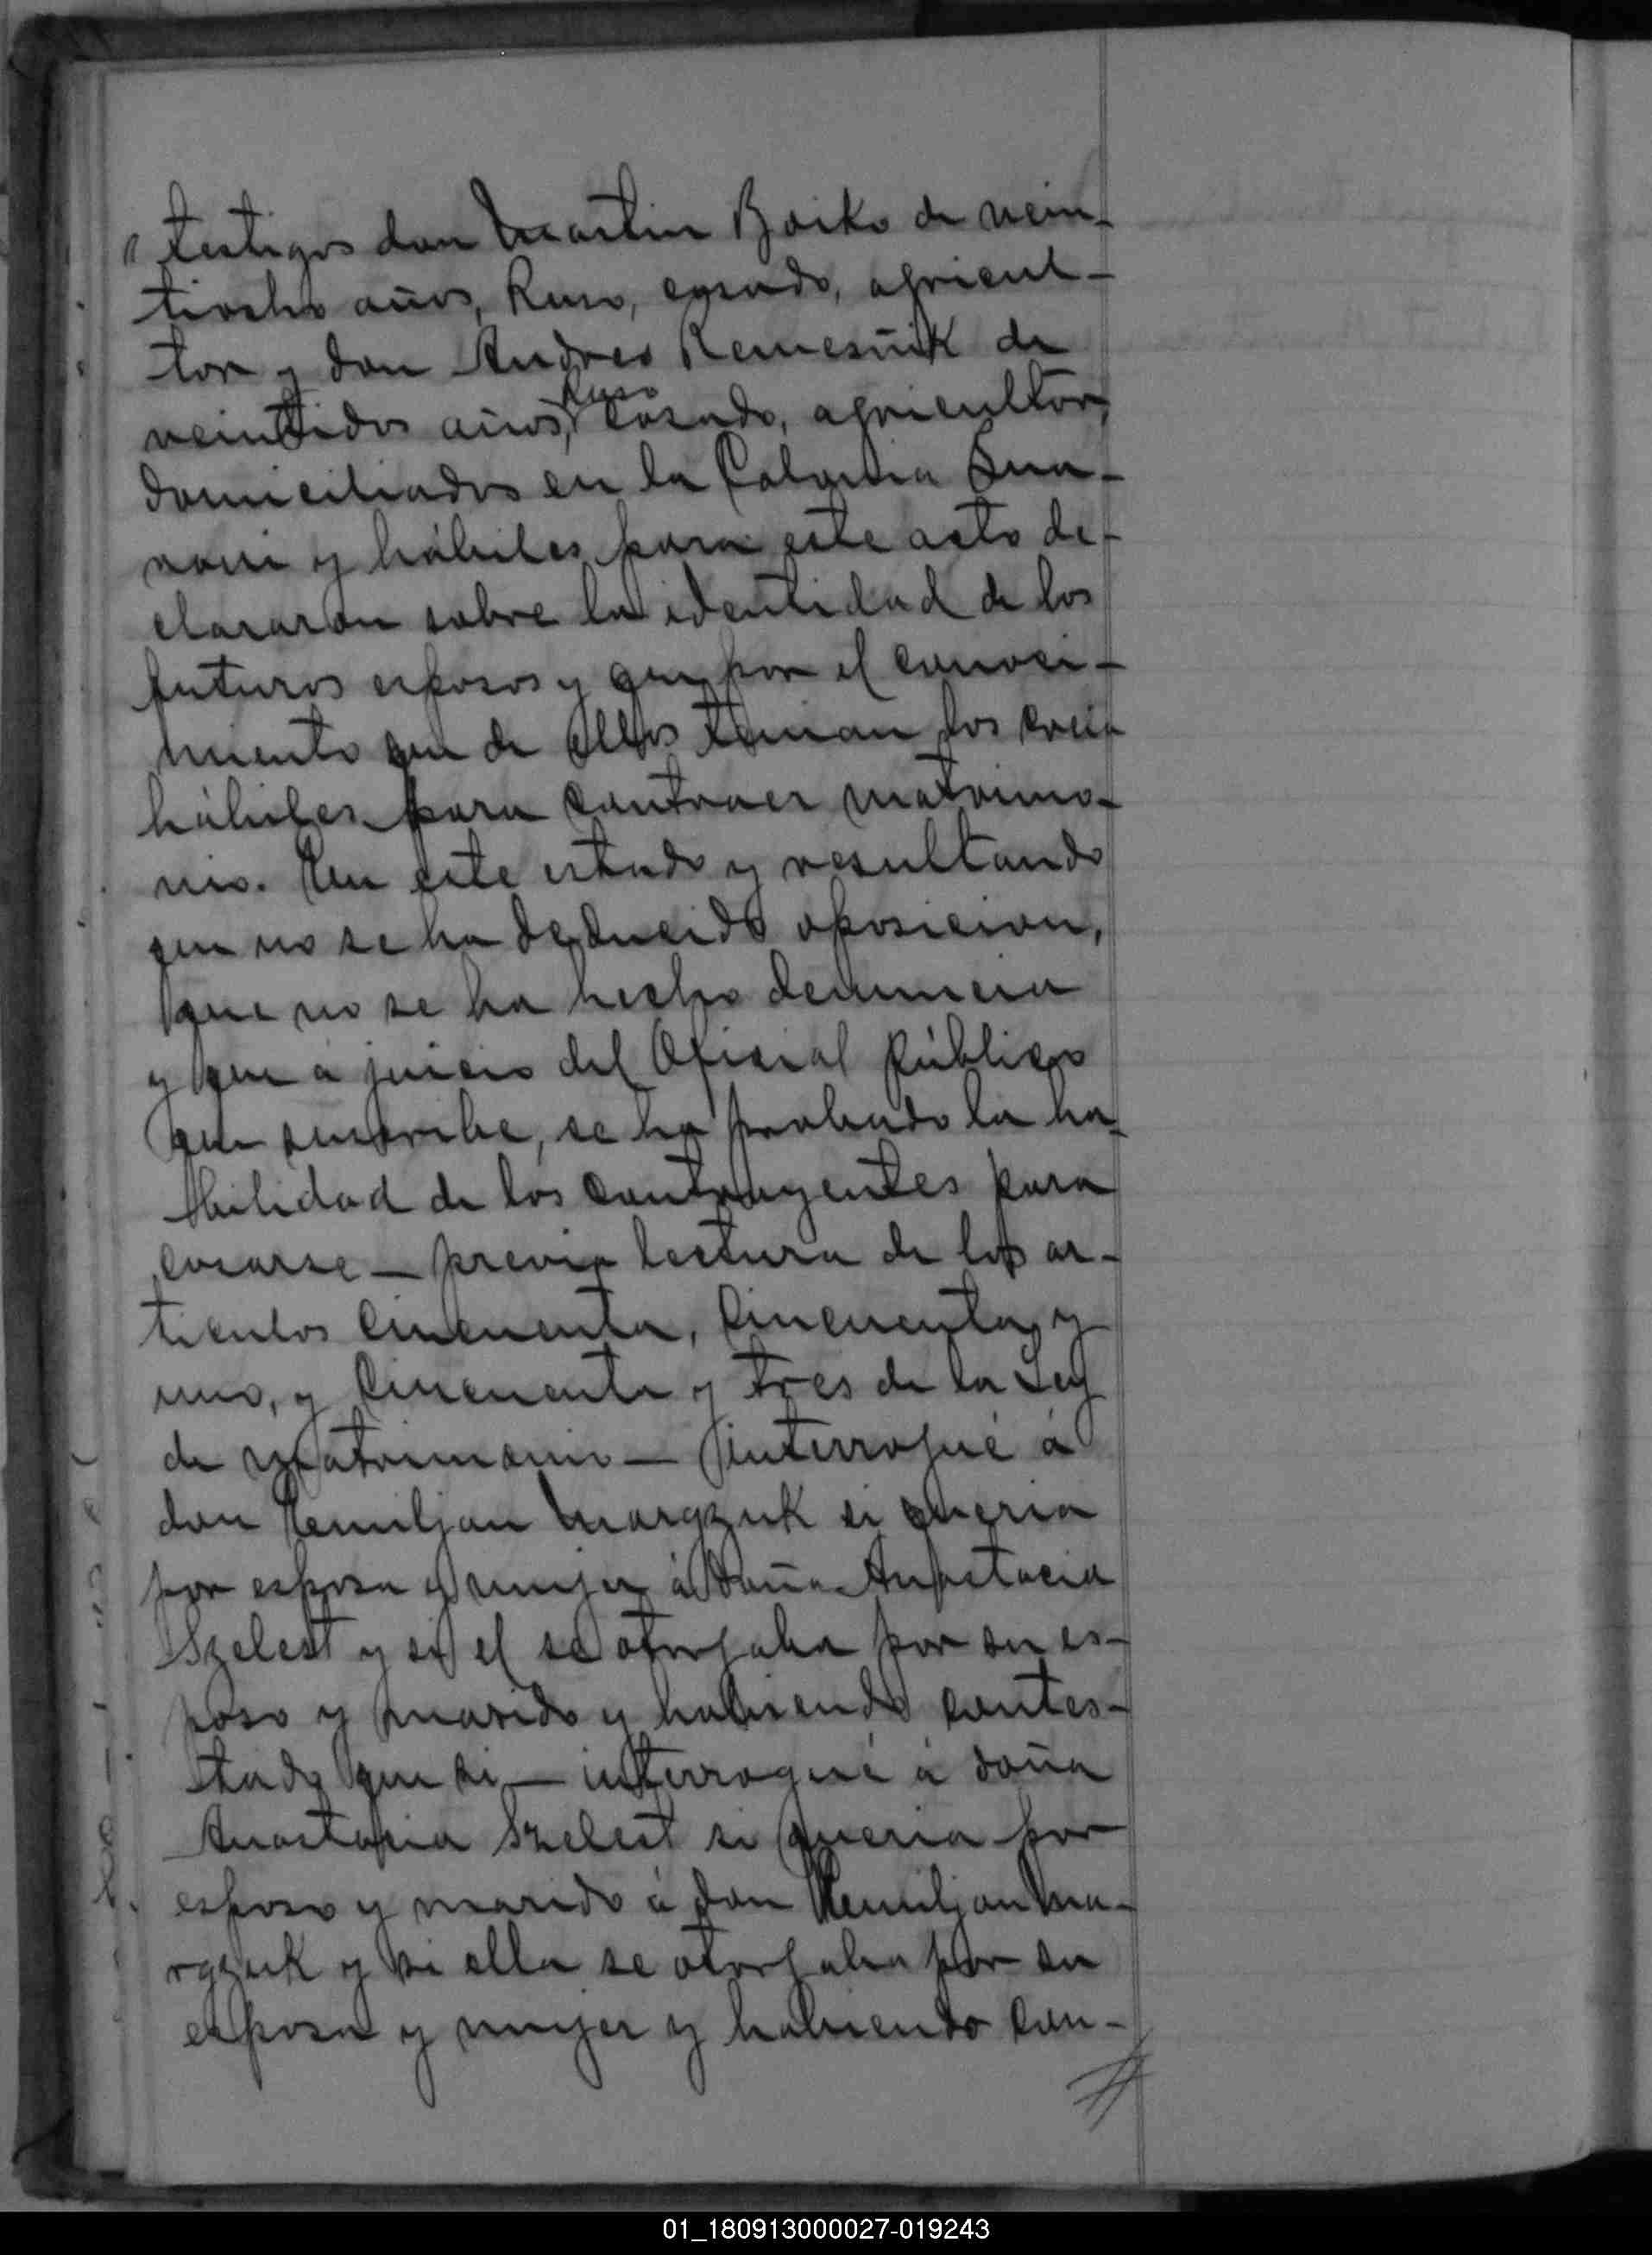 testigos don Martin Boiko de vein-
tiocho años, Ruso, casado, agricul-
tor y don Andres Remesñik de
Ruso
veintidos años, casado, agricultor,
domiciliados en la Colonia
y hábiles para este acto de-
clararon sobre la identidad de los
futuros esposos y que por el conoci-
miento que de ellos tenian los creia
hábiles para contraer matrimo-
nio. En este estado y resultando
que no se ha deducido oposicion,
que no se ha hecho denuncia
y que á juicio del Oficial Público
que suscribe, se ha probado la ha-
bilidad de los contrayentes para
casarse — previa lectura de los ar-
ticulos cincuenta, cincuenta y
uno, y cincuenta y tres de la Ley
de matrimonio — interrogué á
don Emiljan Margzuk si queria
por esposa y mujer á doña Anastacia
Szelest y si el se otorgaba por su es-
poso y marido y habiendo contes-
tado que si — interrogué á doña
Anastacia Szelest si queria por
esposo y marido á don Emiljan Ma-
rgzuk y si ella se otorgaba por su
esposa y mujer y habiendo con-
01_180913000027-019243